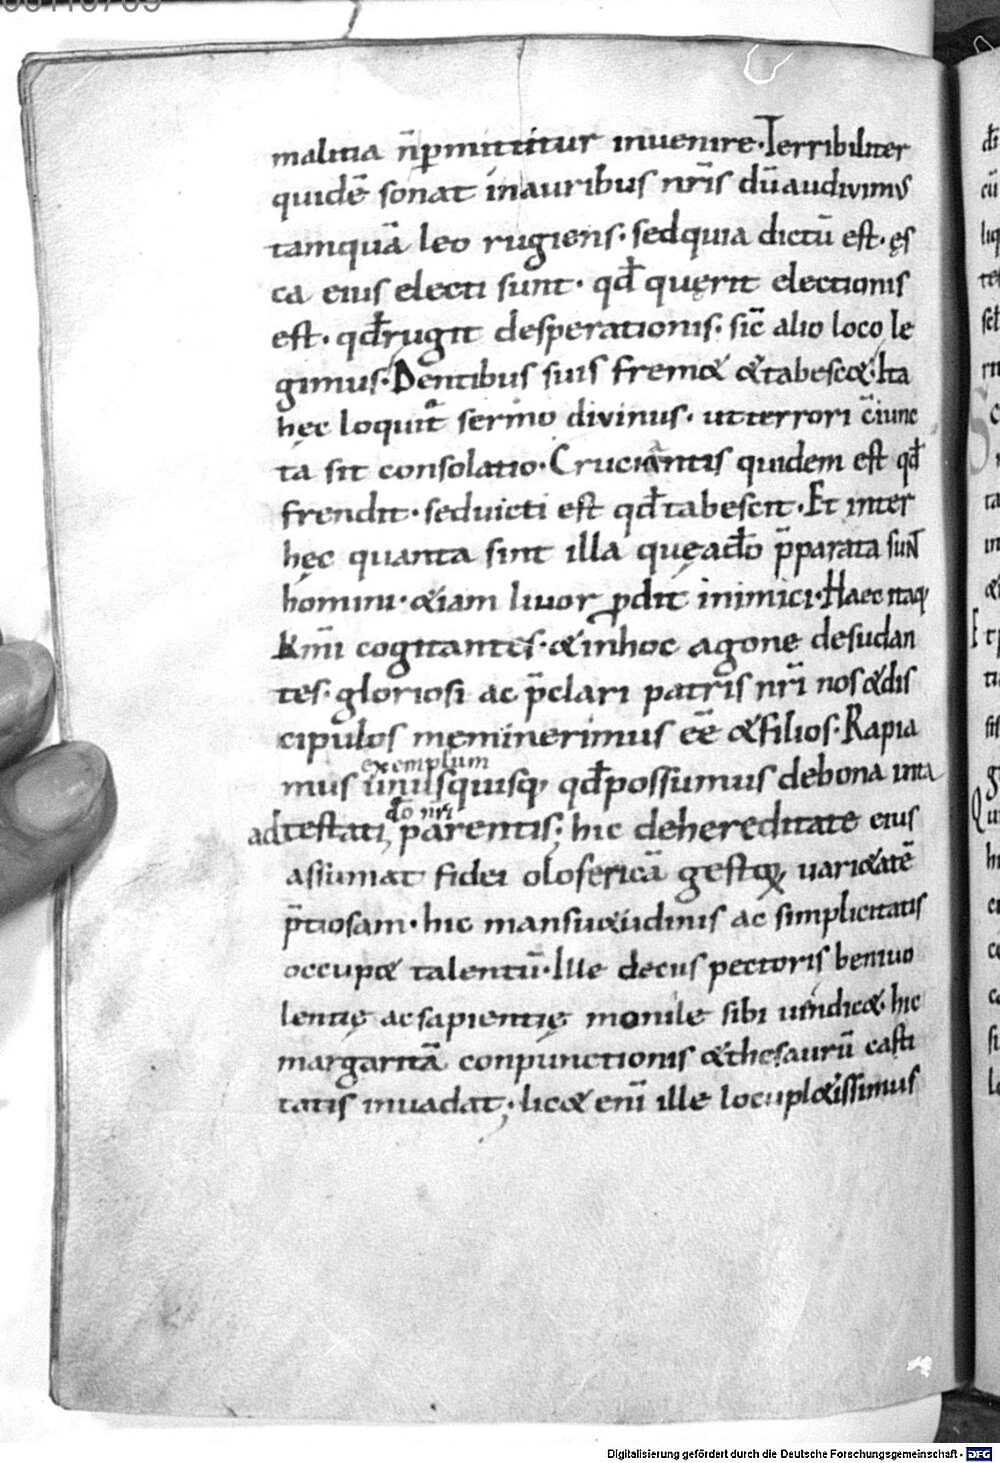 malitia n̄ p̱mittitur invenire. Terribiliter
quidē sonat in auribus nr̄is dū audivimus
tamquā leo rugiens. sed quia dictū est. ęs
ca eius electi sunt. qđ quęrit electionis
est. qđ rugit desperationis. sic̄ alio loco le
gimus. Dentibus suis frem& &tabesc&. Ita
hęc loquit̄ sermo divinus. ut terrori c̄iunc
ta sit consolatio. Cruciantis quidem est qđ
frendit. sed victi est qđ tabescit. Et inter
hęc quanta sint illa quę ad̄o p̄parata sunt
homini. &iam livor p̱dit inimici. Haec itaq;
k̄mi cogitantes. & in hoc agone desudan
tes. gloriosi ac p̄clari patris nr̄i nos & dis
cipulos meminerimus eē & filios. Rapia
exemplum
mus unusquisq; qđ possumus de bona inta
do nr̄i
ad testati parentis; hic de hereditate eius
assumat fidei olofericā gestoꝝ vari&atē
p̄tiosam. hic mansu&udinis ac simplicitatis
occup& talentū. Ille decus pectoris benivo
lentię ac sapientię monile sibi vindic&. hic
margaritā conpunctionis & thesaurū casti
tatis invadat; lic& enī ille locupl&issimus
Digitalisierung gefördert durch die Deutsche Forschungsgemeinschaft - DFG